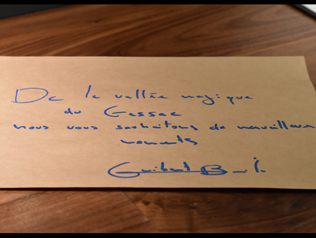 De la vallée magique
du Gessac
nous vous souhaitons de merveilleux
moments
Guibert